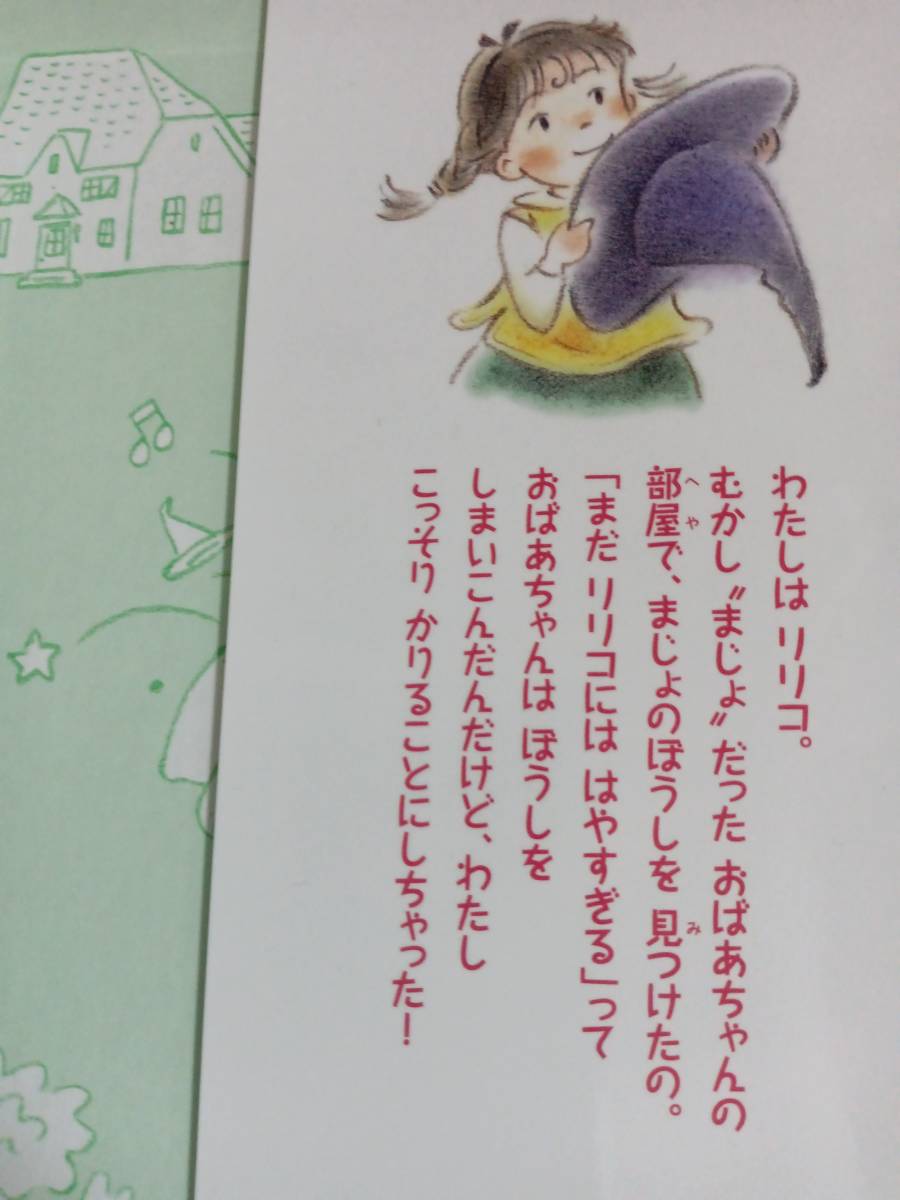 わたしは リリコ。
むかし〝まじょ〟だった おばあちゃんの
部屋で、まじょのぼうしを 見つけたの。
「まだ リリコには はやすぎる」って
おばあちゃんは ぼうしを
しまいこんだんだけど、わたし
こっそり かりることにしちゃった！
へや
み